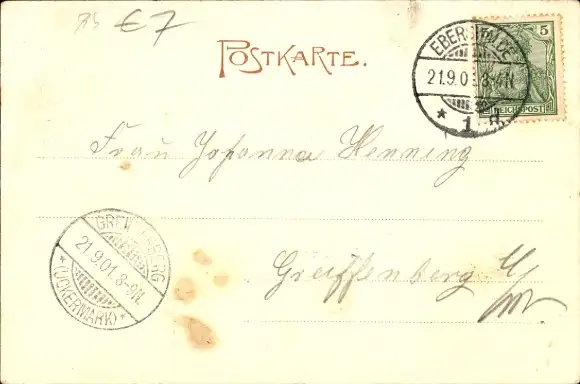 €7
POSTKARTE.
EBERSWALDE
21.9.01 3-4N
* 1 d.
5
REICHSPOST
Frau Johanna Henning
GREIFFENBERG
21.9.01.8-9N.
* (UCKERMARK) *
Greiffenberg U/M